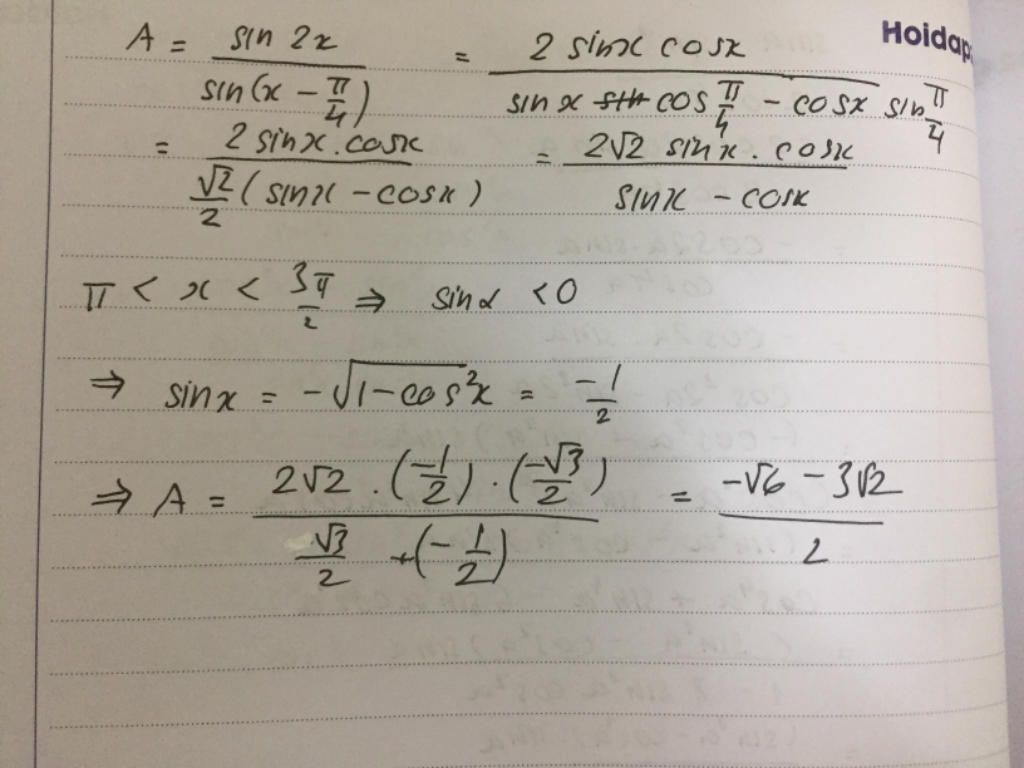 Hoidap
A = sin 2x / sin(x - π/4) = 2 sinx cosx / sin x cos π/4 - cosx sin π/4
= 2 sinx . cosx / √2/2 ( sinx - cosx ) = 2√2 sinx . cosx / sinx - cosx
π < x < 3π/2 ⇒ sinα < 0
⇒ sinx = -√1-cos²x = -1/2
⇒ A = 2√2 . (-1/2) . (-√3/2) / √3/2 + (-1/2) = -√6 - 3√2 / 2